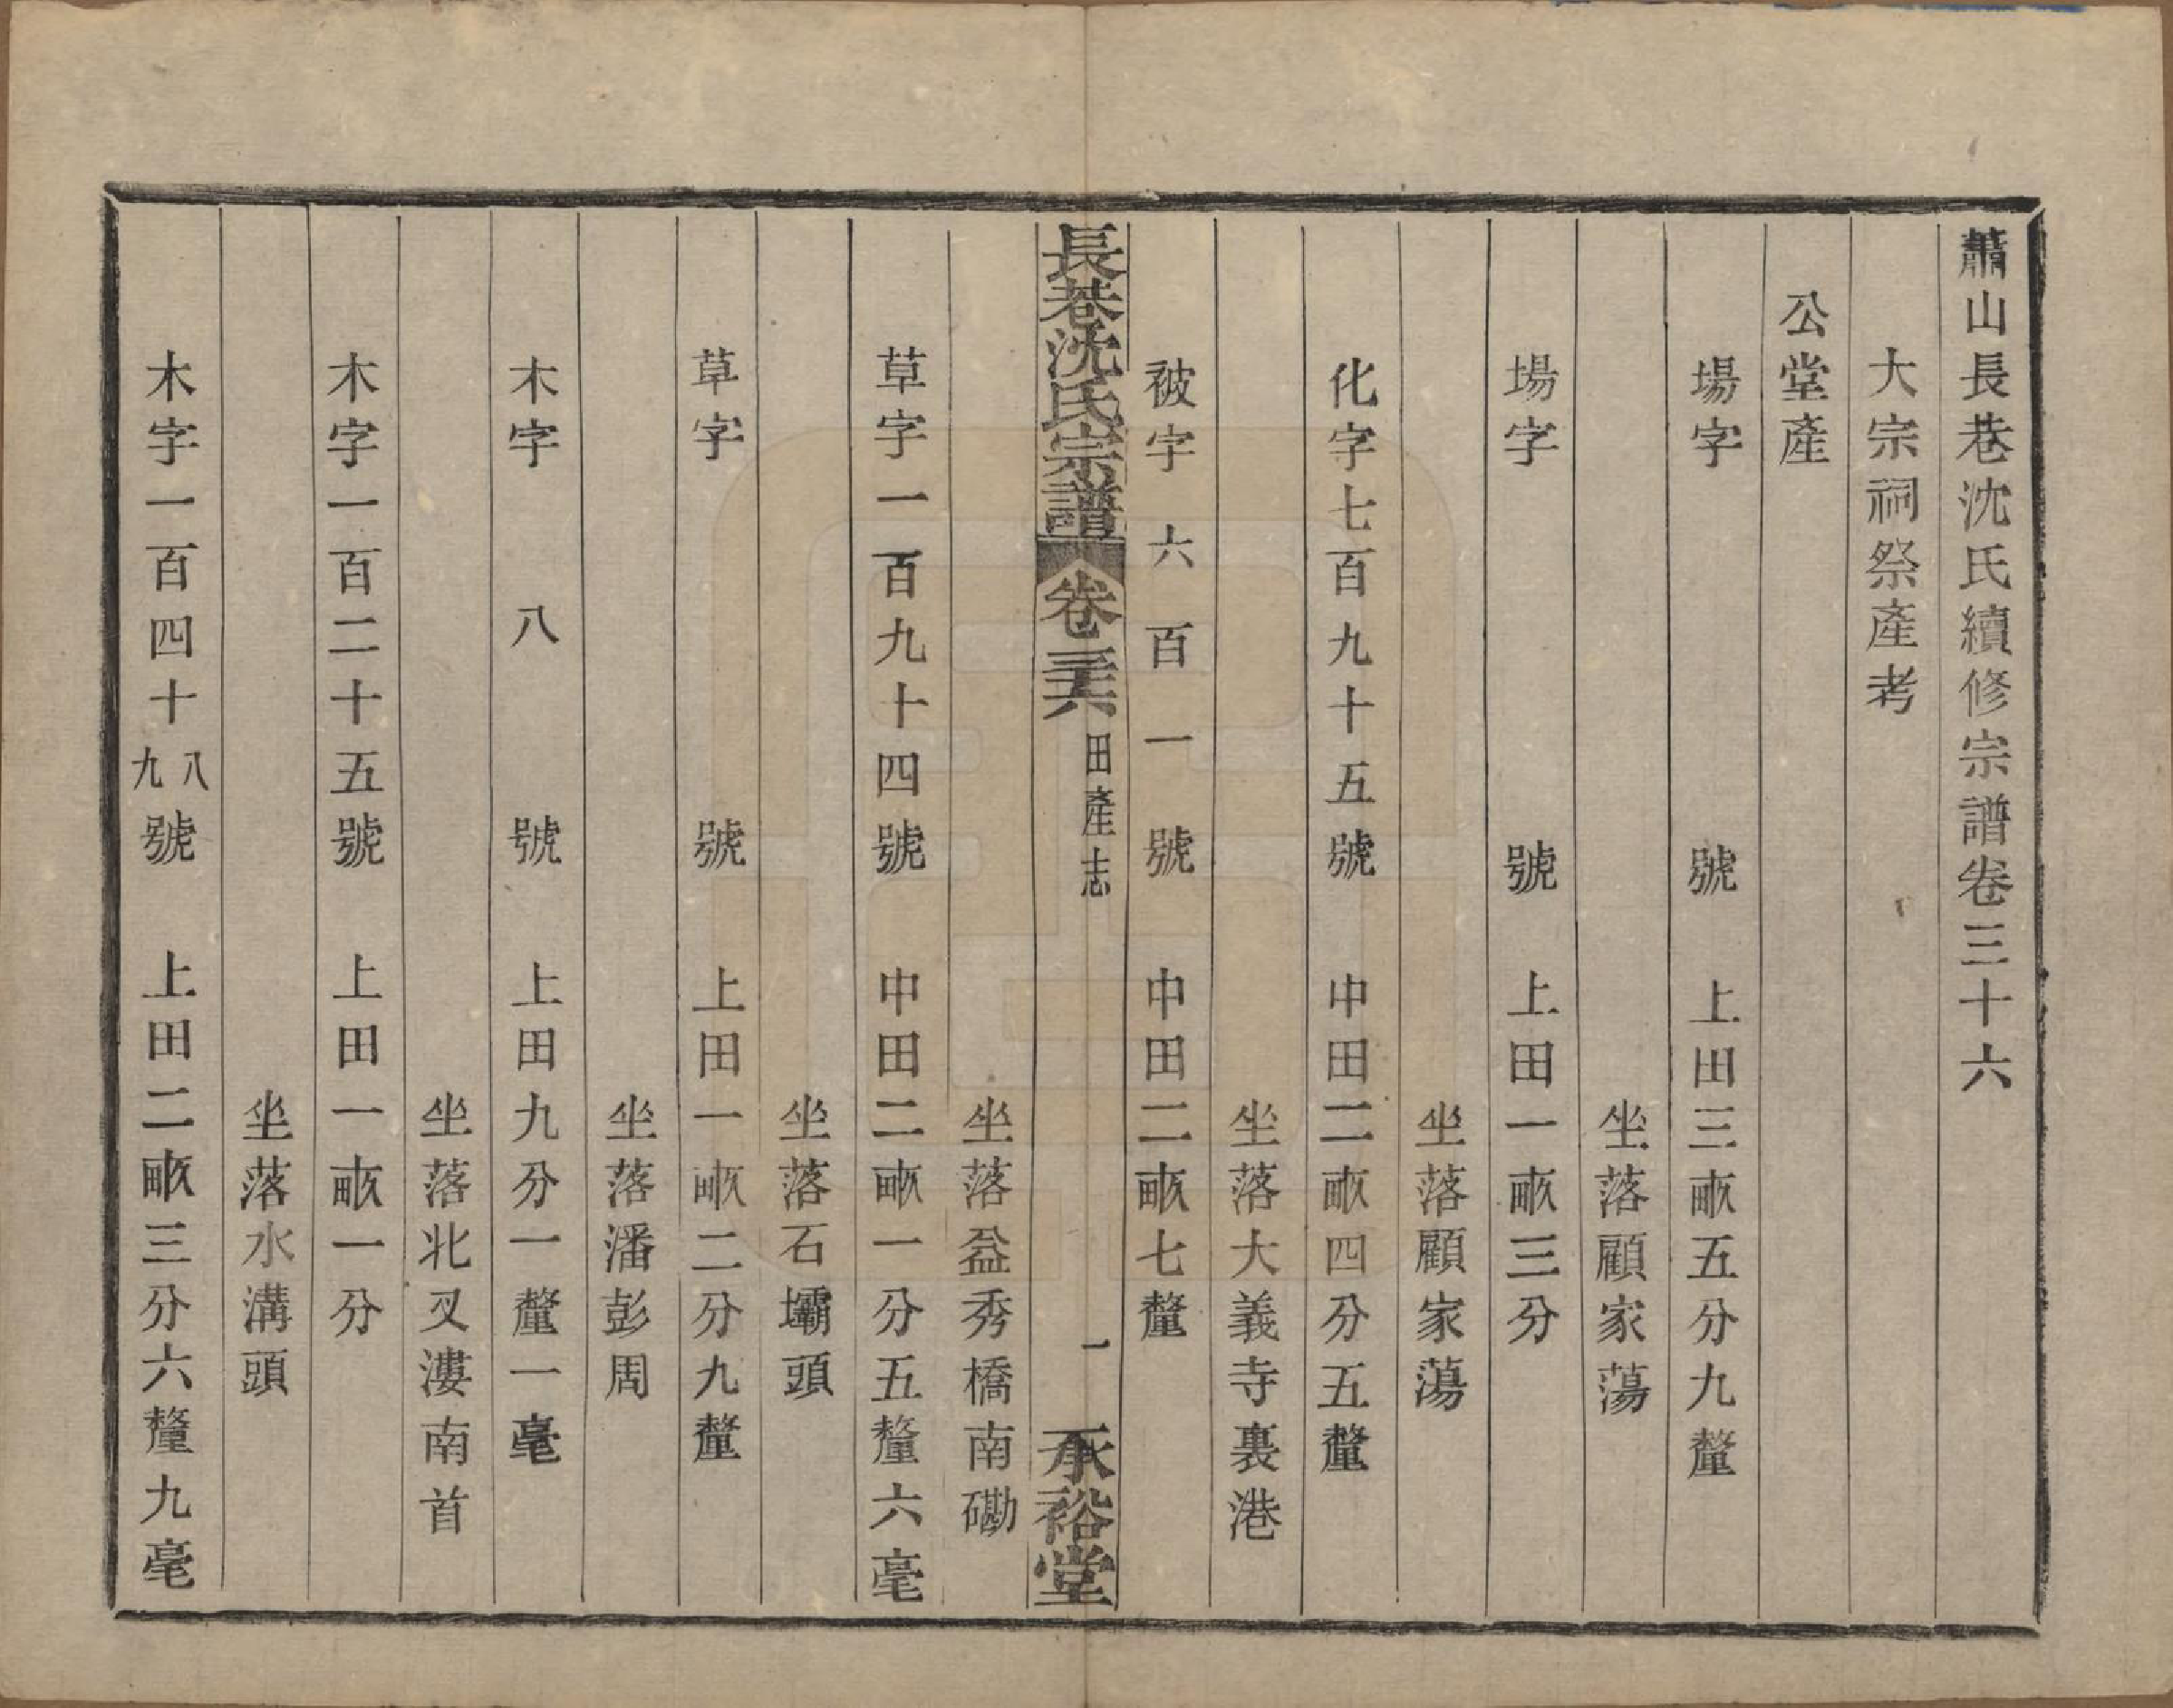 蕭山長巷沈氏續修宗譜卷三十六
大宗祠祭產考
公堂產
場字　號　上田三畝五分九釐
坐落顧家蕩
場字　號　上田一畝三分
坐落顧家蕩
化字七百九十五號　中田二畝四分五釐
坐落大義寺裏港
被字六百一號　中田二畝七釐
長巷沈氏宗譜　卷三十六　田產志　一　承裕堂
坐落益秀橋南磡
草字一百九十四號　中田二畝一分五釐六毫
坐落石壩頭
草字　號　上田一畝二分九釐
坐落潘彭周
木字八號　上田九分一釐一毫
坐落北叉漊南首
木字一百二十五號　上田一畝一分
坐落水溝頭
木字一百四十八九號　上田二畝三分六釐九毫